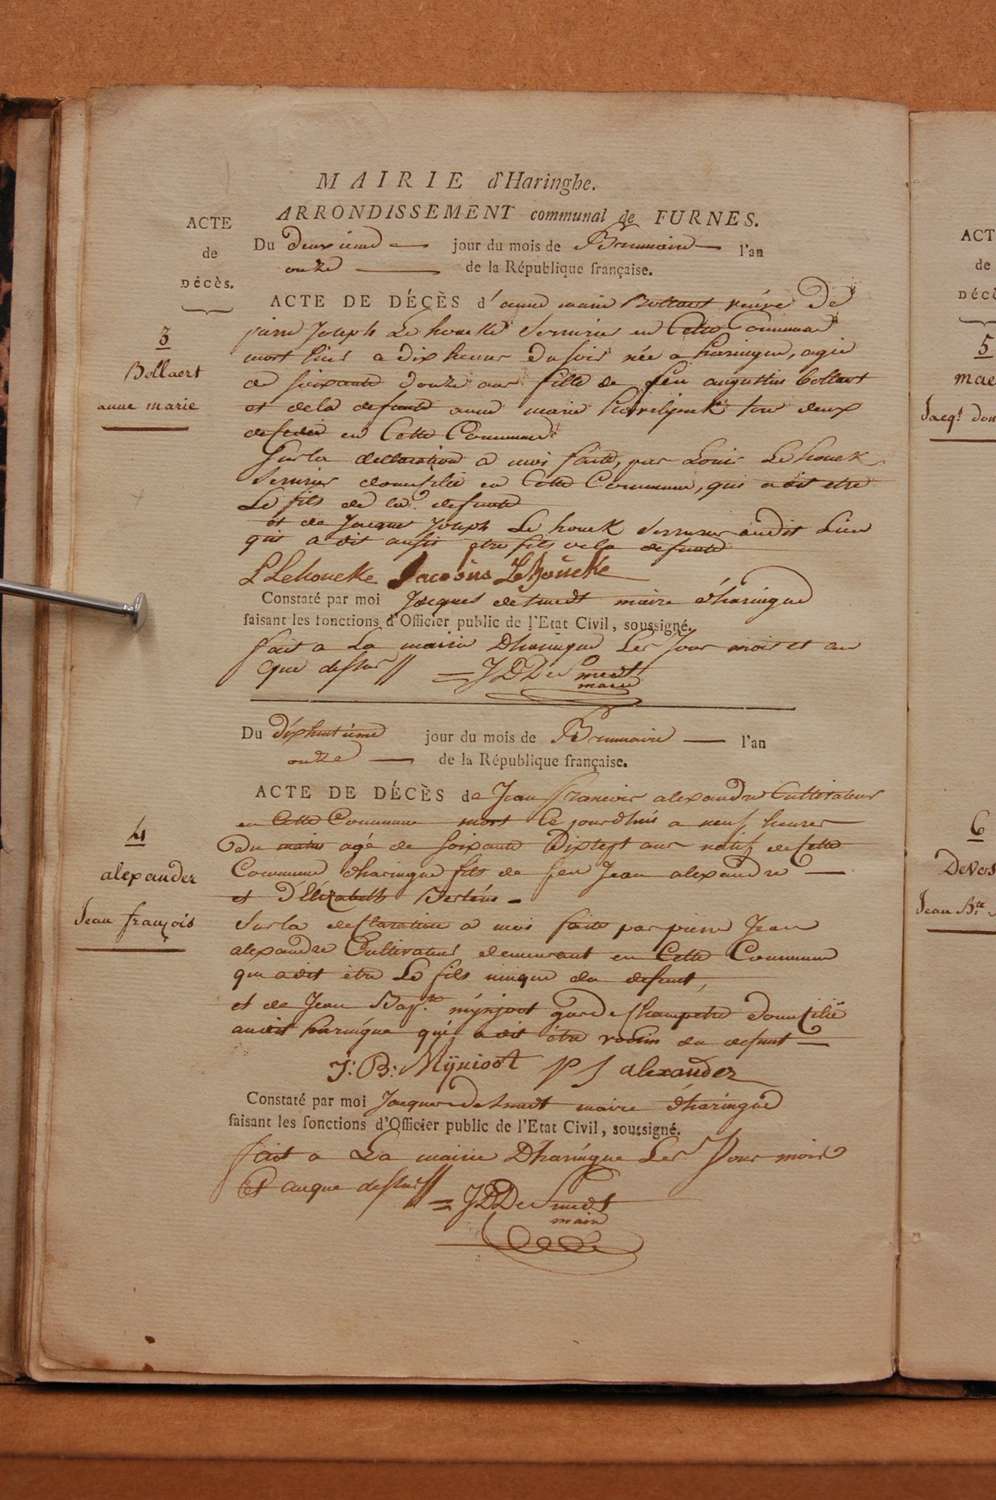 MAIRIE d'Haringhe.
ARRONDISSEMENT communal de FURNES.
ACTE
de
DÉCÈS.
Du deuxieme jour du mois de Brumaire l'an
onze de la République française.
3
Bollaert
anne marie
ACTE DE DÉCÈS d'anne marie Bollaert veuve de
pierre Joseph Le houck Serrurier en Cette Commune
mort hier a dix heures du soir née a haringue, agée
de soixante douze ans fille de feu augustin bollaert
et de la defunte anne marie tou deux
decedé en Cette Commune
Sur la declaration a moi faite, par Louis Le houck
Serrurier domicilié en Cette Commune, qui a dit etre
Le fils de la defunte
et de Jacque Joseph Le houck Serrurier audit Lieu
qui a dit aussi etre fils de la defunte
L Lehoucke Jacobus Lehoucke
Constaté par moi Jacques desmedt maire d'haringue
faisant les fonctions d'Officier public de l'Etat Civil, soussigné.
fait a La mairie D'haringue Les Jour mois et an
que dessus
= JDDe Smedt
maire
Du dixhuitieme jour du mois de Brumaire l'an
onze de la République française.
4
alexander
Jean françois
ACTE DE DÉCÈS de Jean francois alexandre Cultivateur
en Cette Commune mort Ce jourdhui a neuf heures
du matin agé de soixante Dixsept ans natif de Cette
Commune d'haringue fils de feu Jean alexandre
et d'Elizabeth Bertens
Sur la desclaration a moi faite par pierre Jean
alexandre Cultivateur demeurant en Cette Commune
qui a dit être Le fils du defunt,
et de Jean Bapte mÿnjoot garde Champetre domicilié
audit haringue qui a dit être voisin du defunt
J: B: Mÿnioot P J alexander
Constaté par moi Jacques desmedt maire d'haringue
faisant les fonctions d'Officier public de l'Etat Civil, soussigné.
fait a La mairie D'haringue Les Jour mois
Et an que dessus
= JDDe Smedt
maire
ACT
de
DÉCÈ
5
mae
Jacqs
6
Devers
Jean Bte